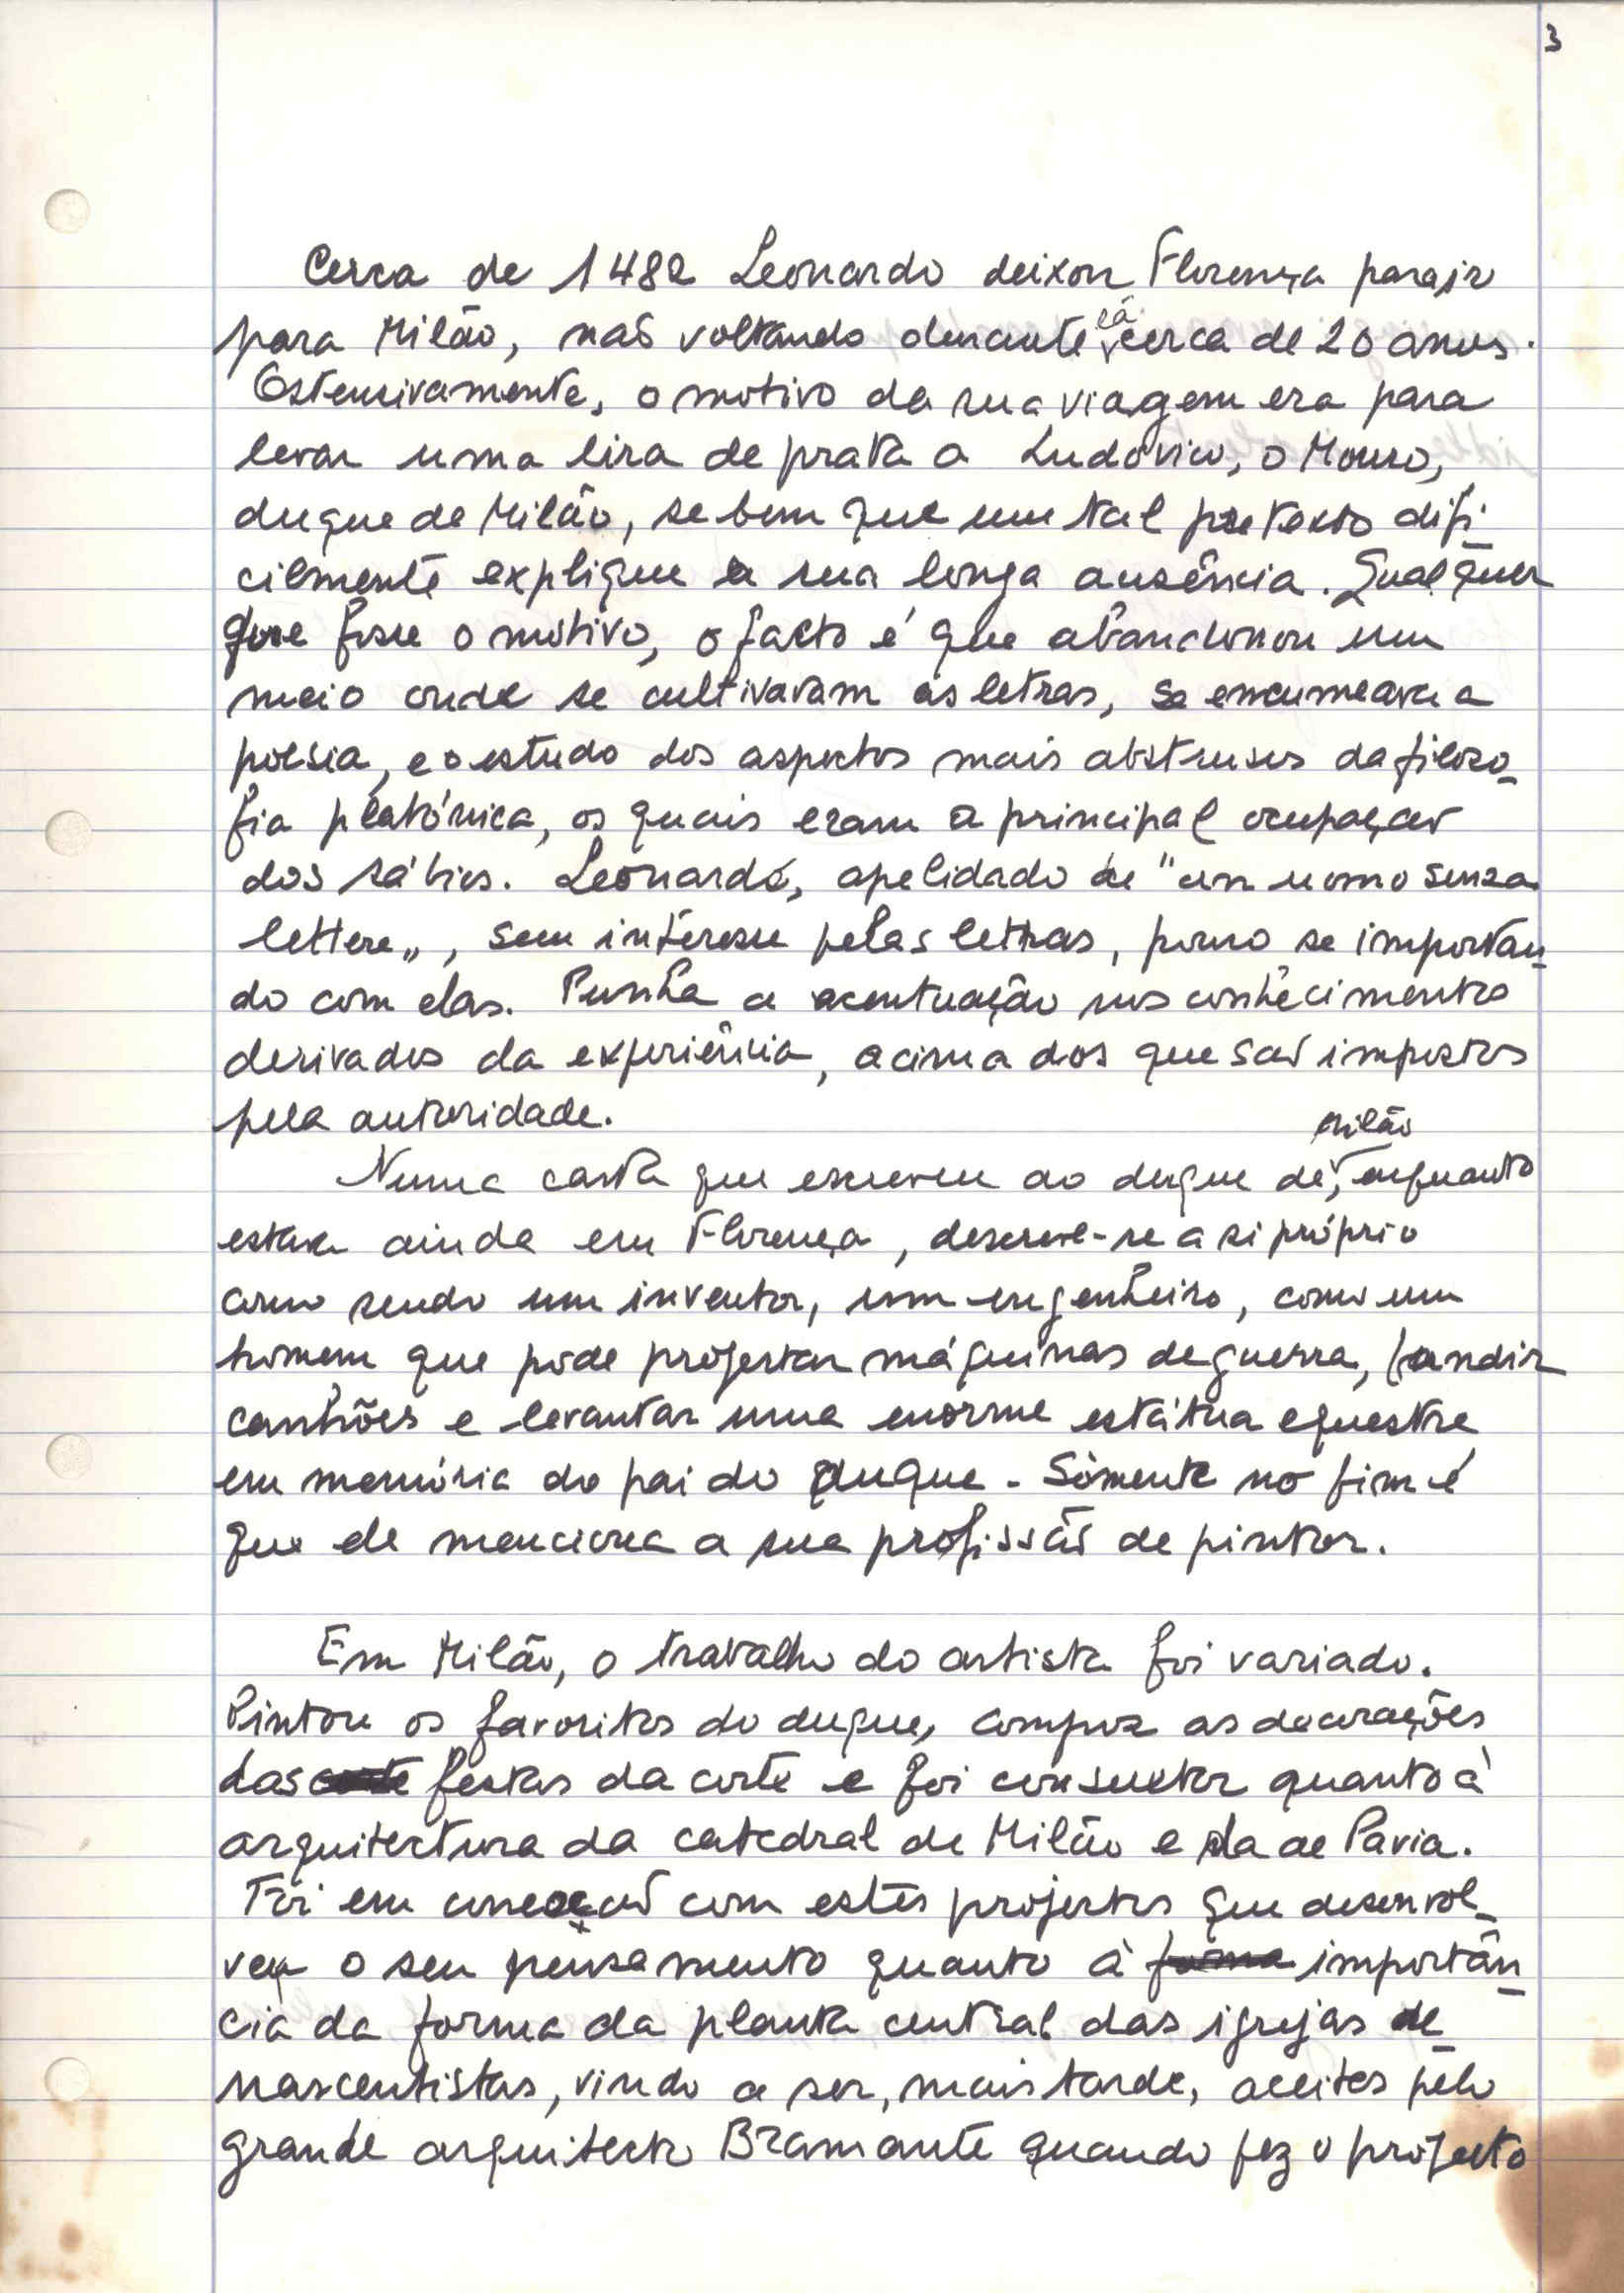 3
Cerca de 1482 Leonardo deixou Florença para ir
para Milão, não voltando durante lá cerca de 20 anos.
Ostensivamente, o motivo da sua viagem era para
levar uma lira de prata a Ludovico, o Mouro,
duque de Milão, se bem que um tal pretexto difi-
cilmente explique a sua longa ausência. Qualquer
que fosse o motivo, o facto é que abandonou um
meio onde se cultivavam as letras, se encumeava a
poesia, e o estudo dos aspectos mais abstrusos da filoso-
fia platónica, os quais eram a principal ocupação
dos sábios. Leonardo, apelidado de "un uomo senza
lettere", sem interesse pelas letras, pouco se importan-
do com elas. Punha a acentuação nos conhecimentos
derivados da experiência, acima dos que são impostos
pela autoridade.
Numa carta que escreveu ao duque de Milão, enquanto
estava ainda em Florença, descreve-se a si próprio
como sendo um inventor, um engenheiro, como um
homem que pode projectar máquinas de guerra, fundir
canhões e levantar uma enorme estátua equestre
em memória do pai do duque. Sòmente no fim é
que ele menciona a sua profissão de pintor.
Em Milão, o trabalho do artista foi variado.
Pintou os favoritos do duque, compoz as decorações
das corte festas da corte e foi consultor quanto à
arquitectura da catedral de Milão e da de Pavia.
Foi em conexão com estes projectos que desenvol-
veu o seu pensamento quanto à forma importân-
cia da forma da planta central das igrejas re-
nascentistas, vindo a ser, mais tarde, aceites pelo
grande arquitecto Bramante quando fez o projecto